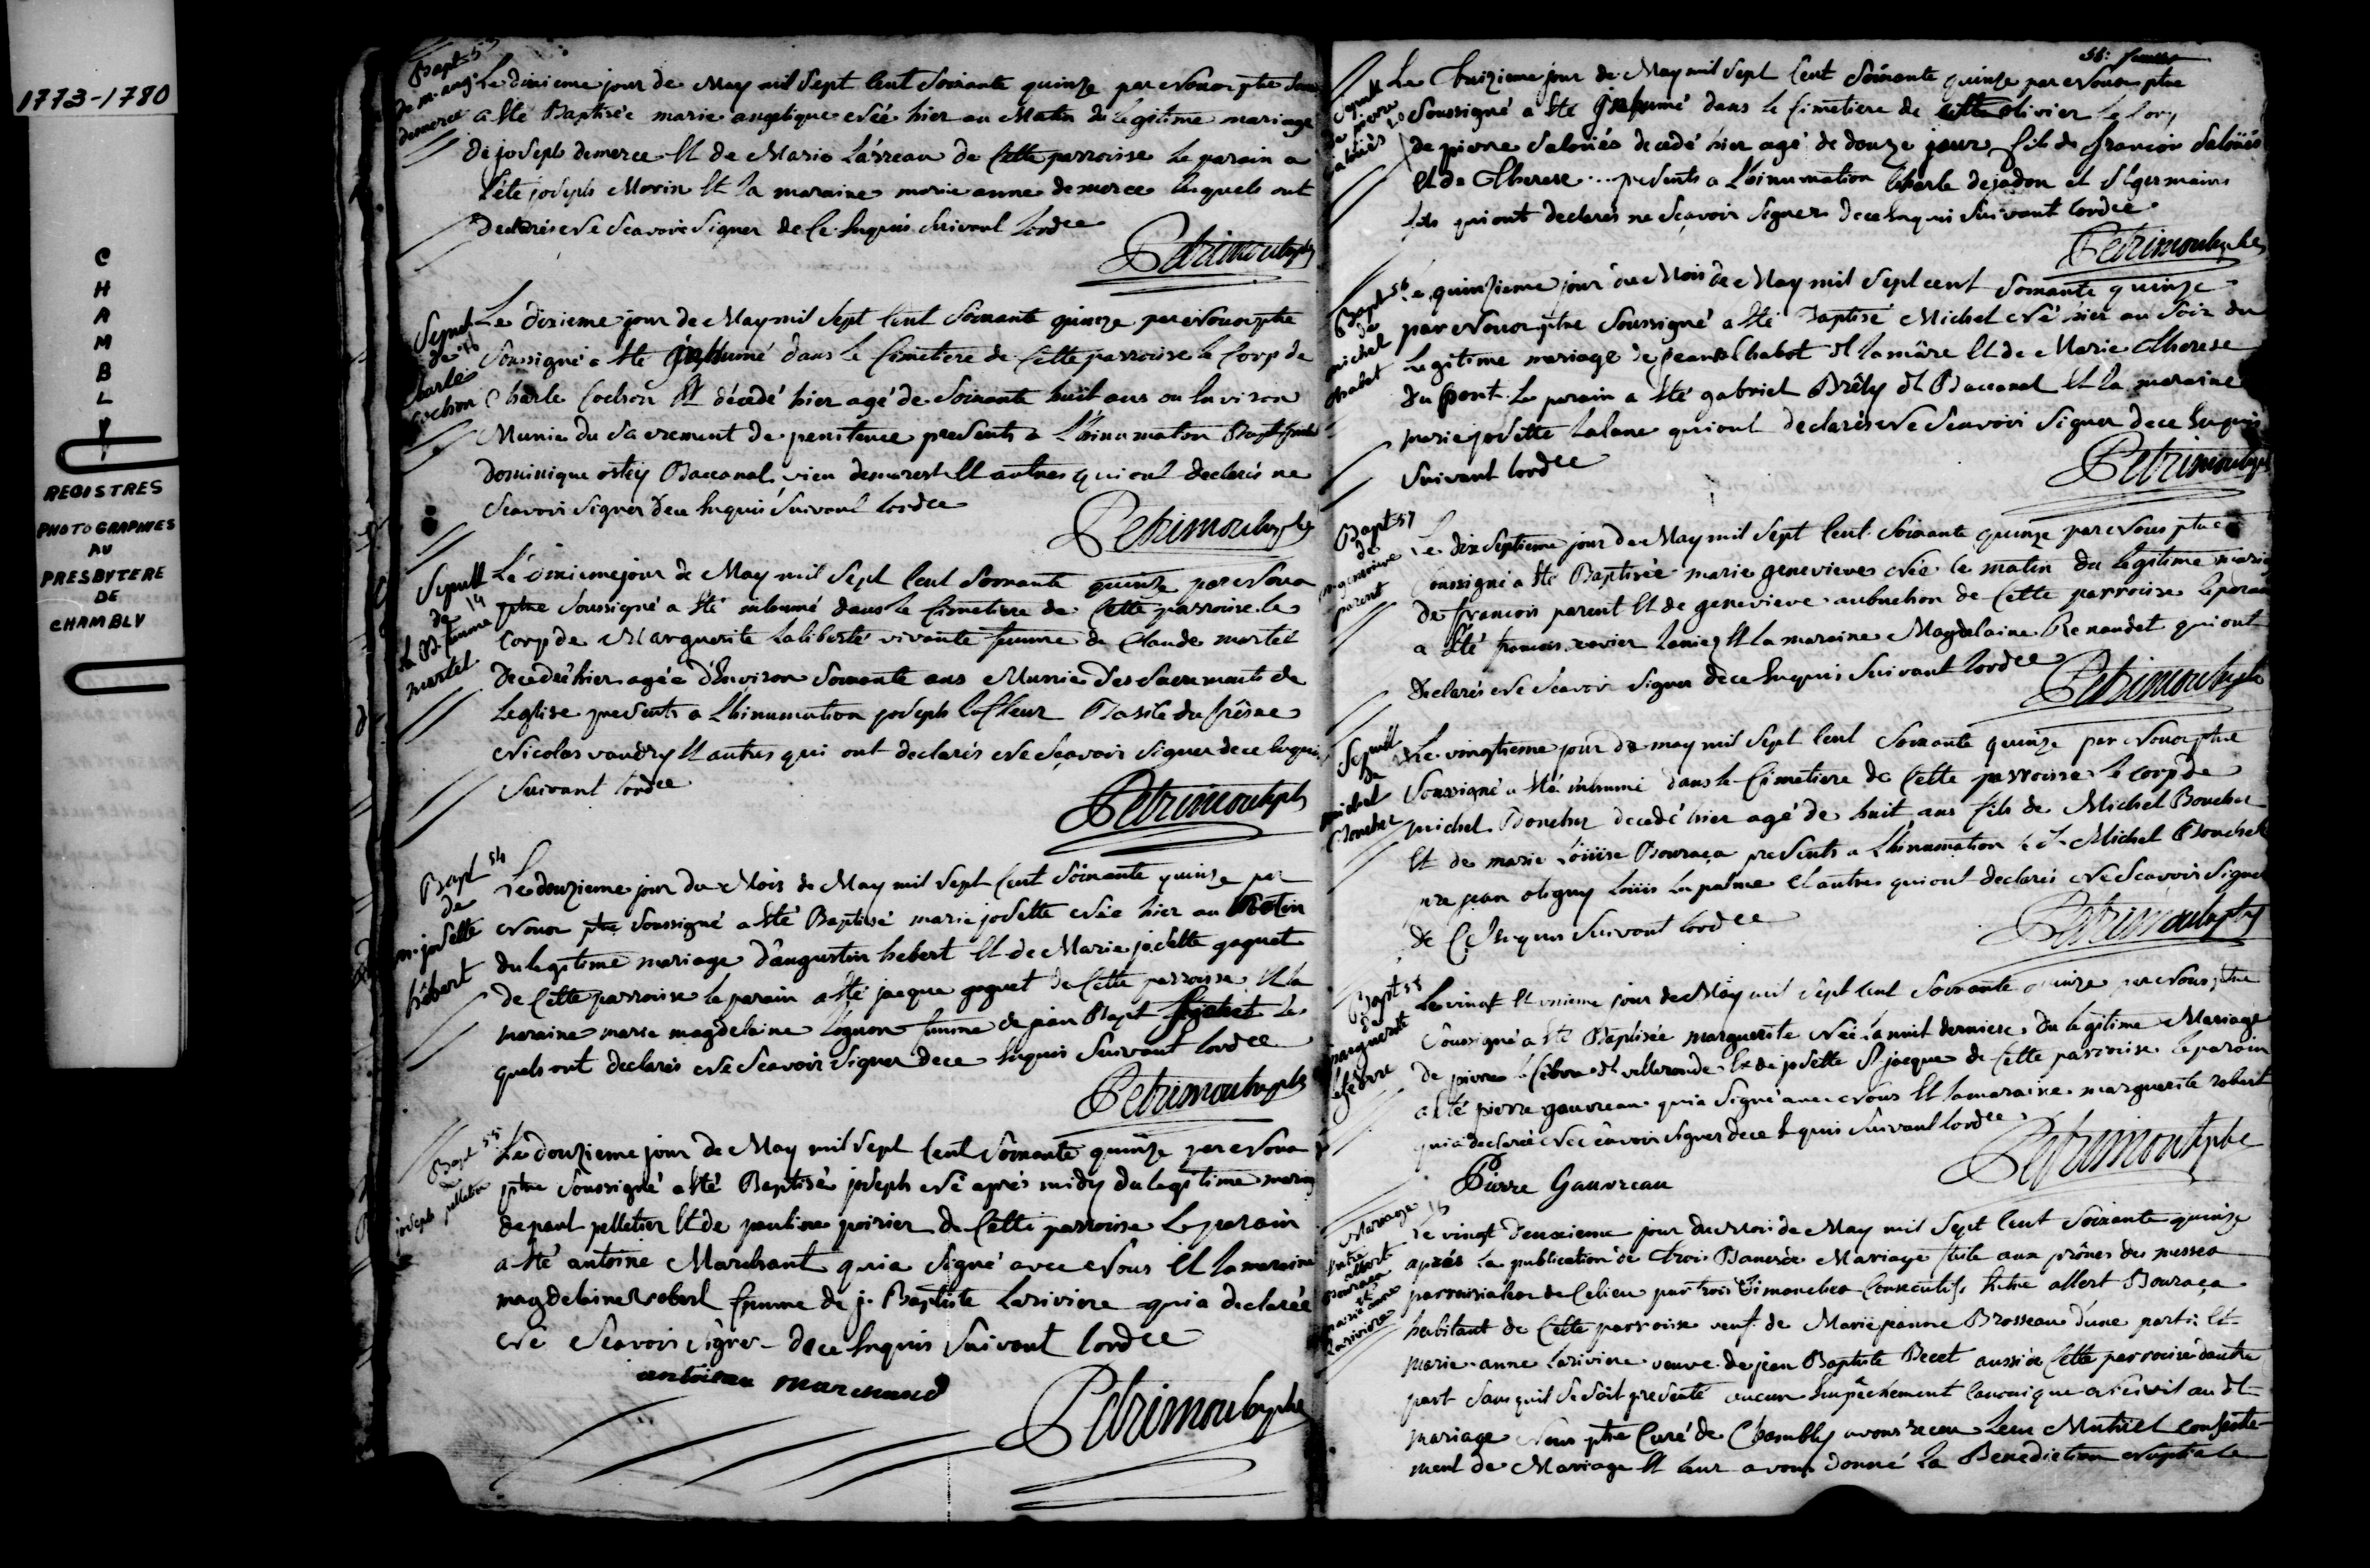 1773-1780
CHAMBLY
REGISTRES
PHOTOGRAPHIES
AU
PRESBYTERE
DE
CHAMBLY
Bapt 53
de m. ang.
demerce
Le dixieme jour de May mil Sept Cent Soixante quinze par Nous ptre
a Eté Baptisée marie angelique Née hier au Matin du legitime mariage
de joseph demerce Et de Marie Larreau de Cette parroisse Le parain a
Eté joseph Morin Et la maraine marie anne demerce lesquels ont
declarés Ne Scavoir Signer de Ce Enquis Suivant lordce
Petrimoulxptre
Sepult
de
Charle
Cochon
Le dixieme jour de May mil Sept Cent Soixante quinze par Nous ptre
Soussigné a Eté inhumé dans Le Cimetiere de Cette parroisse le Corp de
Charle Cochon décédé hier agé de Soixante huit ans ou Environ
Munie du Sacrement de penitence presents a L'hinumation
Dominique ostey Baccanal vieu demerest Et autres qui ont declarés ne
Scavoir Signer de ce Enquis Suivant lordce
Petrimoulxptre
Sepult 14
de
la femme
martel
Le onxieme jour de May mil Sept Cent Soixante quinze par Nous
ptre Soussigné a Eté inhumé dans le Cimetiere de Cette parroisse le
Corp de Marguerite Laliberté vivante femme de Claude martel
Decedée hier agée d'Environ Soixante ans Munie des Sacrements de
Leglise presents a Lhinumation joseph lafleur Basile dufrêsne
Nicolas vandry Et autres qui ont declarés Ne Scavoir Signer de ce Enquis
Suivant lordce
Petrimoulxptre
Bapt 54
de
m. josette
hébert
Le douzieme jour du Mois de May mil Sept Cent Soixante quinze par
Nous ptre Soussigné a Eté Baptisé marie josette Née hier au Matin
du legitime mariage d'augustin hebert Et de Marie josette goguet
de Cette parroisse le parain a Eté jacque goguet de Cette parroisse Et la
maraine marie magdelaine lognon femme de jean Bapt goguet les
quels ont declarés Ne Scavoir Signer de ce Enquis Suivant lordce
Petrimoulxptre
Bapt 55
de
joseph pelletier
Le douzieme jour de May mil Sept Cent Soixante quinze par Nous
ptre Soussigné a Eté Baptisé joseph Né après midy du legitime mariage
de paul pelletier Et de pauline poirier de Cette parroisse Le parain
a Eté antoine Marchant qui a Signé avec Nous Et la maraine
magdelaine robert femme de j. Baptiste Lariviere qui a declarée
Ne Scavoir Signer de ce Enquis Suivant lordce
antoine marchand
Petrimoulxptre
Sepult
de pierre
Le treizieme jour de May mil Sept Cent Soixante quinze par Nous ptre
Soussigné a Eté inhumé dans le Cimetiere de olivier le Corp
de pierre decedé hier agé de douze jour fils de francois
Et de Therese presents a L'hinumation Charle dejadon et St germain
qui ont declarés ne Scavoir Signer de ce Enquis Suivant lordce
Petrimoulxptre
Bapt 56
de
michel
chabot
Le quinzieme jour du Mois de May mil Sept cent Soixante quinze
par Nous ptre Soussigné a Eté Baptisé Michel Né hier au Soir du
Legitime mariage de jean Chabot dt lamâre Et de Marie Therese
Dupont Le parain a Eté gabriel Brêly dt Baccanal Et la maraine
marie josette Lalane qui ont declarés Ne Scavoir Signer de ce Enquis
Suivant lordce
Petrimoulxptre
Bapt 57
de
m. genevieve
parent
Le dix Septieme jour de May mil Sept Cent Soixante quinze par Nous ptre
Soussigné a Eté Baptisée marie genevieve Née le matin du legitime mariage
de francois parent Et de genevieve aubuchon de Cette parroisse le parain
a Eté francois xavier Et la maraine Magdelaine Renaudet qui ont
Declarés Ne Scavoir Signer de ce Enquis Suivant lordce
Petrimoulxptre
Sepult
de
michel
Boucher
Le vingtieme jour de may mil Sept Cent Soixante quinze par Nous ptre
Soussigné a Eté inhumé dans le Cimetiere de Cette parroisse le corp de
michel Boucher decedé hier agé de huit ans fils de Michel Boucher
Et de marie Loüise Bouraça presents a Lhinumation Michel Boucher
pere jean oligny Loüis lapalme et autres qui ont declarés Ne Scavoir Signer
de Ce Enquis Suivant lordce
Petrimoulxptre
Bapt 58
de
marguerite
lefebvre
Le vingt Et unieme jour de May mil Sept Cent Soixante quinze par Nous ptre
Soussigné a Eté Baptisée marguerite Née la nuit derniere du legitime Mariage
de pierre lefebvre dt Et de josette St jacque de Cette parroisse le parain
a Eté pierre gauvreau qui a Signé avec Nous Et la maraine marguerite robert
qui a declarée Ne Scavoir Signer de ce Enquis Suivant lordce
Pierre Gauvreau
Petrimoulxptre
Mariage
Entre
albert
Bouraça
et
marie anne
Lariviere
Le vingt Deuxieme jour du Mois de May mil Sept Cent Soixante quinze
après la publication de trois Bans de Mariage faite aux prônes des messes
parroissiales de Ce lieu par trois Dimanches Consecutifs Entre albert Bouraça
habitant de Cette parroisse veuf de Marie jeanne Brosseau d'une part Et
marie anne Lariviere veuve de jean Baptiste Becet aussi de Cette parroisse dautre
part Sans quil Se Soit presenté aucun Empêchement Canonique au dt
mariage Nous ptre Curé de Chambly avons receu Leur Mutuel Consente-
ment de Mariage Et leur avons donné la Benediction Nuptiale